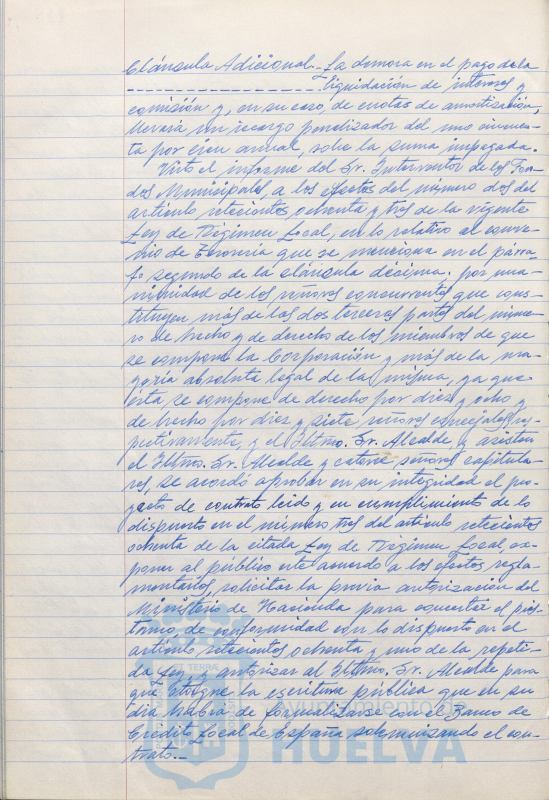 Cláusula Adicional.- La demora en el pago de la
liquidación de intereses y
comisión y, en su caso, de cuotas de amortización,
llevará un recargo penalizador del uno cincuen-
ta por cien anual, sobre la suma impagada.
Visto el informe del Sr. Interventor de los Fon-
dos Municipales, a los efectos del número dos del
artículo setecientos ochenta y tres de la vigente
Ley de Régimen Local, en lo relativo al conve-
nio de Tesorería que se menciona en el párra-
fo segundo de la cláusula décima. por una-
nimidad de los señores concurrentes que cons-
tituyen más de las dos terceras partes del núme-
ro de hecho y de derecho de los miembros de que
se compone la Corporación y más de la ma-
yoría absoluta legal de la misma, ya que
ésta se compone de derecho por diez y ocho y
de hecho por diez y siete señores concejales res-
pectivamente, y el Iltmo. Sr. Alcalde y asisten
el Iltmo. Sr. Alcalde y catorce señores capitula-
res, se acordó aprobar en su integridad el pro-
yecto de contrato leído y en cumplimiento de lo
dispuesto en el número tres del artículo setecientos
ochenta de la citada Ley de Régimen Local, ex-
poner al público este acuerdo a los efectos regla-
mentarios, solicitar la previa autorización del
Ministerio de Hacienda para concertar el prés-
tamo, de conformidad con lo dispuesto en el
artículo setecientos ochenta y uno de la repeti-
da Ley y autorizar al Iltmo. Sr. Alcalde para
que otorgue la escritura pública que en su
día habrá de formalizarse con el Banco de
Crédito Local de España solemnizando el con-
trato.-
Ayuntamiento de
HUELVA